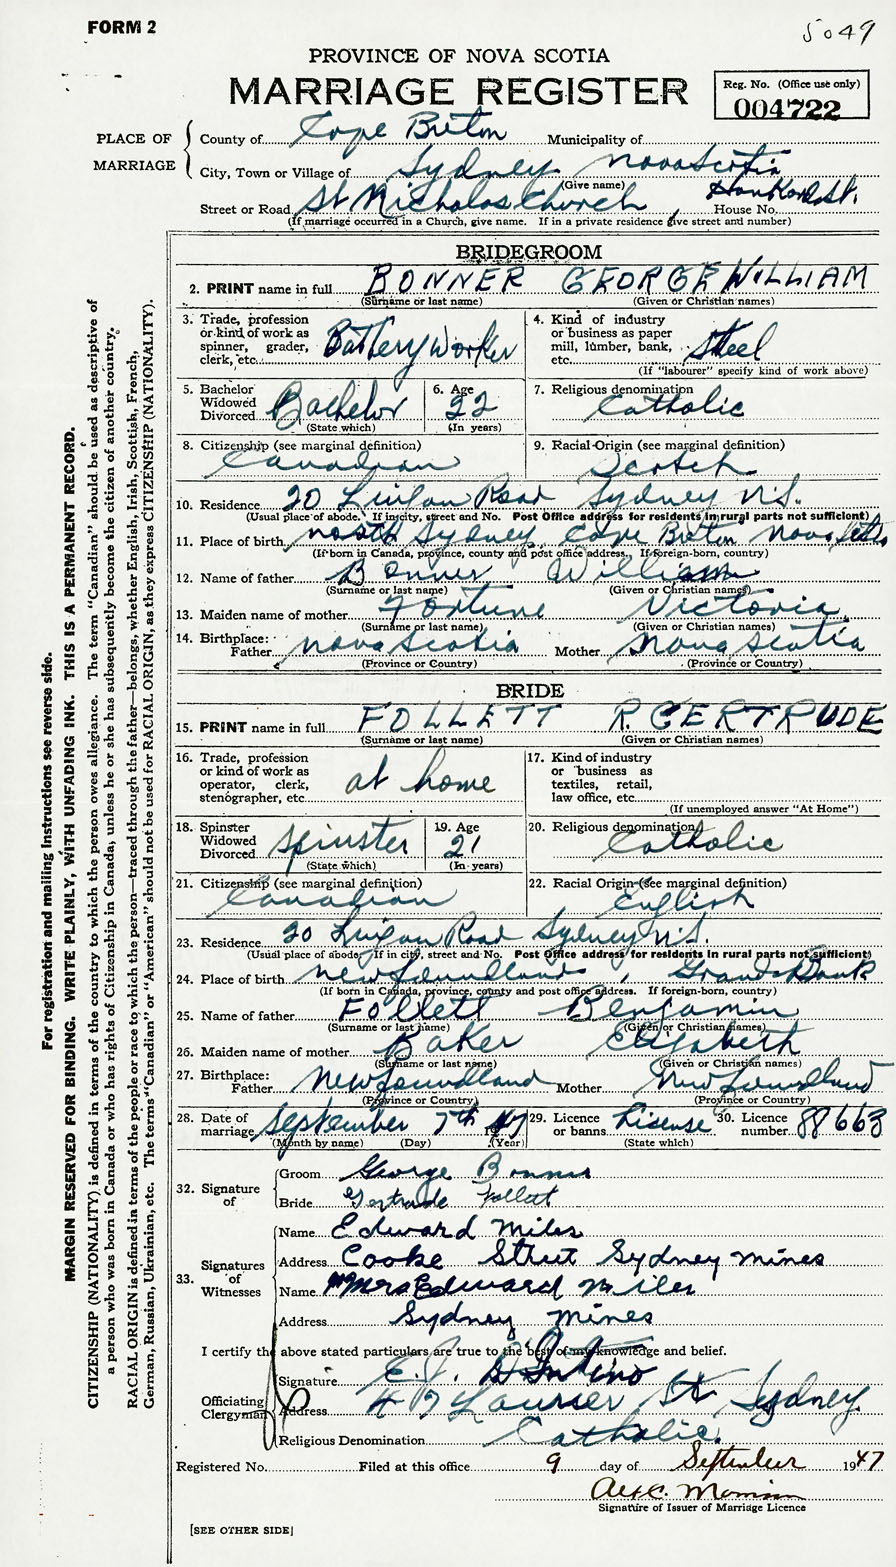 FORM 2
5049
PROVINCE OF NOVA SCOTIA
MARRIAGE REGISTER
Reg. No. (Office use only)
004722
PLACE OF MARRIAGE
County of Cape Breton Municipality of
City, Town or Village of Sydney Nova Scotia
(Give name)
Street or Road St Nicholas Church House No. St.
(If marriage occurred in a Church, give name. If in a private residence give street and number)
BRIDEGROOM
2. PRINT name in full BONNER GEORGE WILLIAM
(Surname or last name) (Given or Christian names)
3. Trade, profession or kind of work as spinner, grader, clerk, etc. Battery Worker
4. Kind of industry or business as paper mill, lumber, bank, etc. Steel
(If "labourer" specify kind of work above)
5. Bachelor Widowed Divorced Bachelor
(State which)
6. Age 22
(In years)
7. Religious denomination Catholic
8. Citizenship (see marginal definition) Canadian
9. Racial Origin (see marginal definition) Scotch
10. Residence 20 Lingan Road Sydney N.S.
(Usual place of abode. If in city, street and No. Post Office address for residents in rural parts not sufficient)
11. Place of birth North Sydney, Cape Breton Nova Scotia
(If born in Canada, province, county and post office address. If foreign-born, country)
12. Name of father Bonner William
(Surname or last name) (Given or Christian names)
13. Maiden name of mother Fortune Victoria
(Surname or last name) (Given or Christian names)
14. Birthplace:
Father Nova Scotia Mother Nova Scotia
(Province or Country) (Province or Country)
BRIDE
15. PRINT name in full FOLLETT R. GERTRUDE
(Surname or last name) (Given or Christian names)
16. Trade, profession or kind of work as operator, clerk, stenographer, etc. at home
17. Kind of industry or business as textiles, retail, law office, etc.
(If unemployed answer "At Home")
18. Spinster Widowed Divorced Spinster
(State which)
19. Age 21
(In years)
20. Religious denomination Catholic
21. Citizenship (see marginal definition) Canadian
22. Racial Origin (see marginal definition) English
23. Residence 20 Lingan Road Sydney N.S.
(Usual place of abode. If in city, street and No. Post Office address for residents in rural parts not sufficient)
24. Place of birth Newfoundland, Grand Bank
(If born in Canada, province, county and post office address. If foreign-born, country)
25. Name of father Follett Benjamin
(Surname or last name) (Given or Christian names)
26. Maiden name of mother Baker Elizabeth
(Surname or last name) (Given or Christian names)
27. Birthplace:
Father Newfoundland Mother Newfoundland
(Province or Country) (Province or Country)
28. Date of marriage September 7th 1947
(Month by name) (Day) (Year)
29. Licence or banns Lisense
(State which)
30. Licence number 88663
32. Signature of
Groom George Bonner
Bride Gertrude Follett
33. Signatures of Witnesses
Name Edward Miles
Address Cooke Street Sydney Mines
Name Mrs Edward Miles
Address Sydney Mines
I certify the above stated particulars are true to the best of my knowledge and belief.
Officiating Clergyman
Signature E.
Address St Sydney
Religious Denomination Catholic.
Registered No. Filed at this office 9 day of September 1947
Alex C. Morrison
Signature of Issuer of Marriage Licence
[SEE OTHER SIDE]
For registration and mailing instructions see reverse side.
MARGIN RESERVED FOR BINDING. WRITE PLAINLY, WITH UNFADING INK. THIS IS A PERMANENT RECORD.
CITIZENSHIP (NATIONALITY) is defined in terms of the country to which the person owes allegiance. The term "Canadian" should be used as descriptive of
a person who was born in Canada or who has rights of Citizenship in Canada, unless he or she has subsequently become the citizen of another country.
RACIAL ORIGIN is defined in terms of the people or race to which the person—traced through the father—belongs, whether English, Irish, Scottish, French,
German, Russian, Ukrainian, etc. The terms "Canadian" or "American" should not be used for RACIAL ORIGIN, as they express CITIZENSHIP (NATIONALITY).